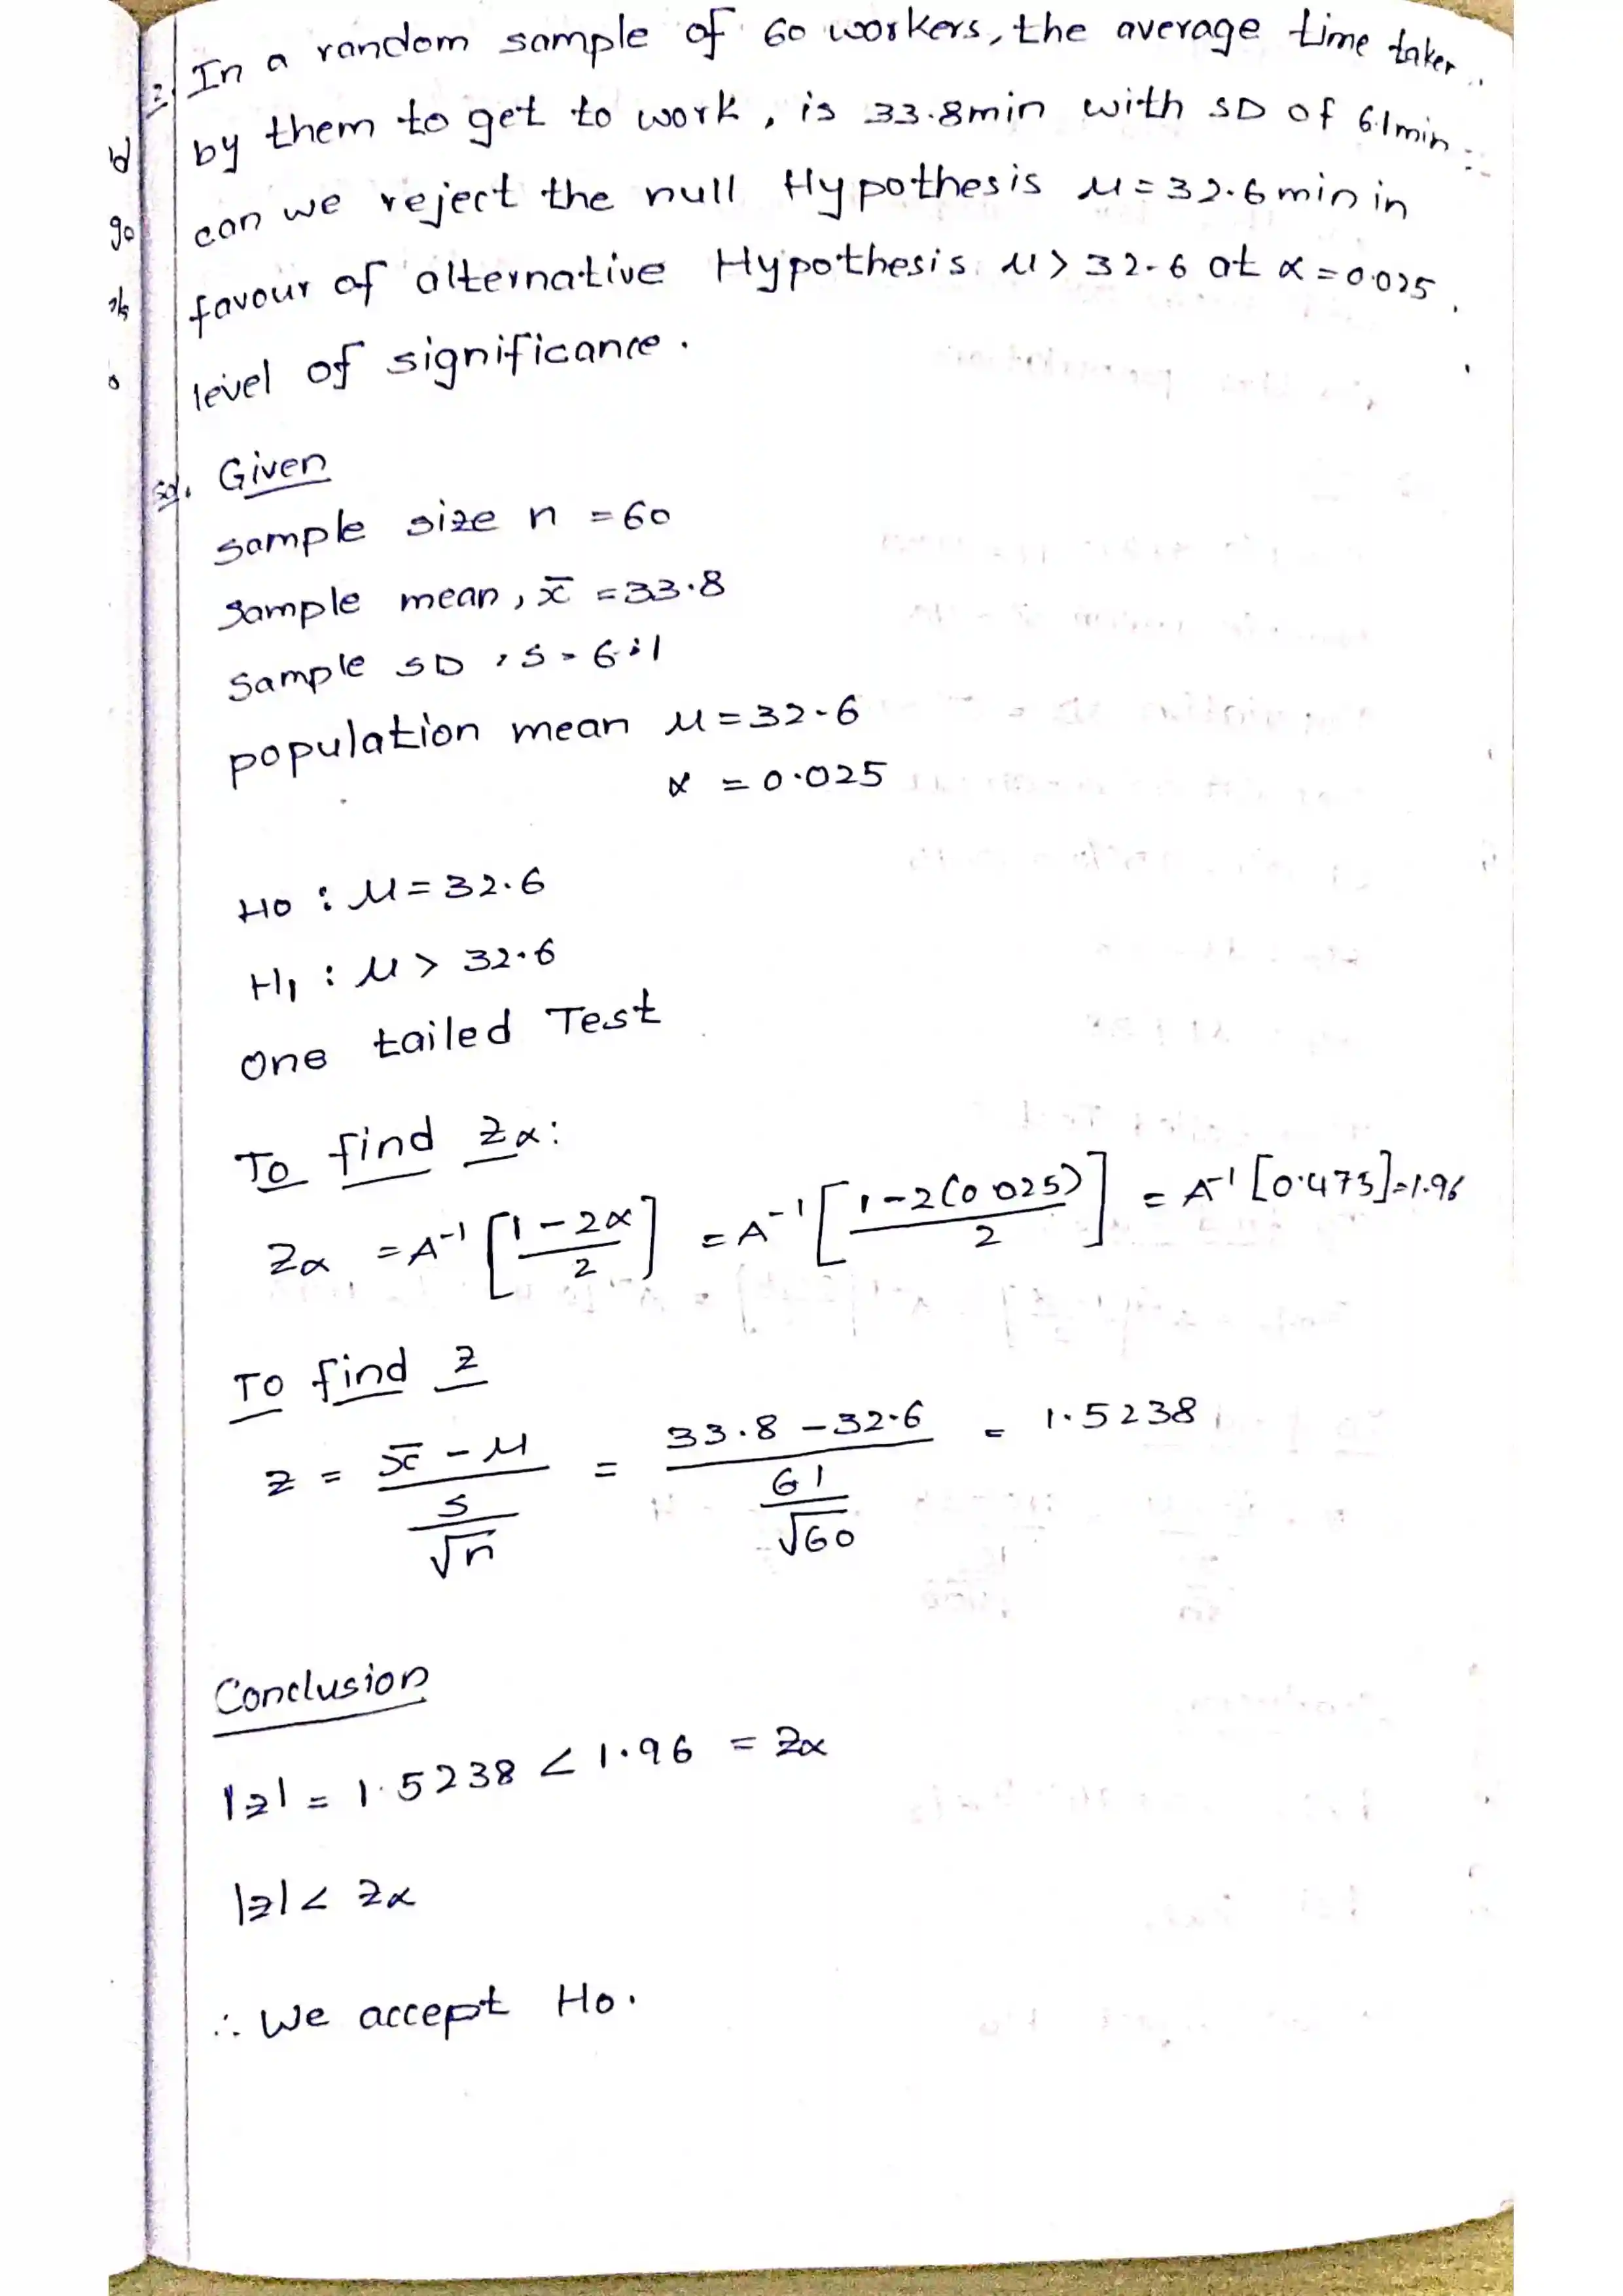 2. In a random sample of 60 workers, the average time taken
by them to get to work, is 33.8min with SD of 6.1min
can we reject the null Hypothesis μ = 32.6 min in
favour of alternative Hypothesis μ > 32.6 at α = 0.025
level of significance.
sol. Given
sample size n = 60
sample mean, x̄ = 33.8
sample SD, s = 6.1
population mean μ = 32.6
α = 0.025
H0 : μ = 32.6
H1 : μ > 32.6
One tailed Test
To find Zα:
Zα = A⁻¹ [(1 - 2α)/2] = A⁻¹ [(1 - 2(0.025))/2] = A⁻¹ [0.475] = 1.96
To find z
z = (x̄ - μ)/(s/√n) = (33.8 - 32.6)/(6.1/√60) = 1.5238
Conclusion
|z| = 1.5238 < 1.96 = Zα
|z| < Zα
∴ We accept H0.